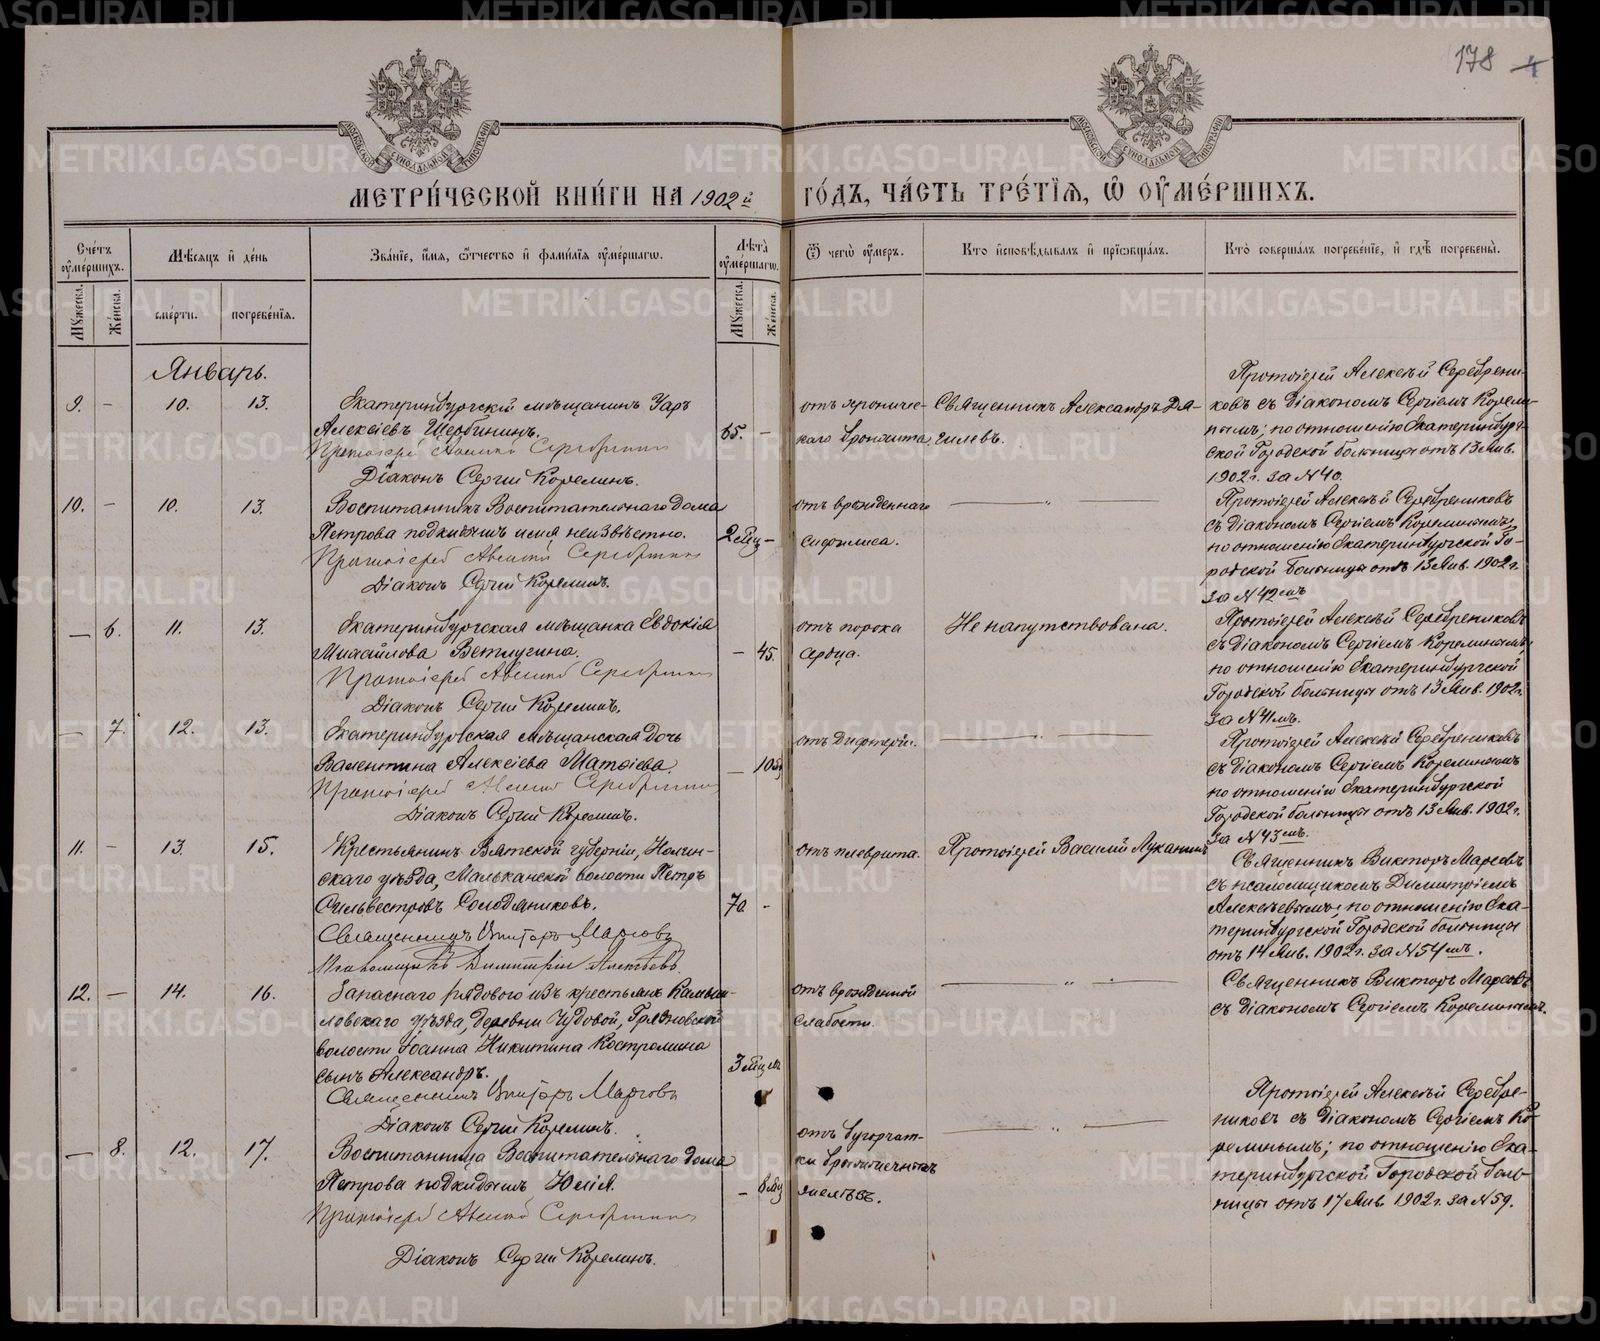 178
МЕТРИ́ЧЕСКОЙ КНИ́ГИ НА 1902й ГО́ДЪ, ЧА́СТЬ ТРЕ́ТІѦ, Ѽ ОУМЕ́РШИХЪ.
Сче́тъ оуме́ршихъ.
Му́жеска.
Же́нска.
Мѣ́сяцъ и҆ де́нь
сме́рти.
погребе́нїѧ.
Зва́нїе, и҆́мѧ, ѻ҆́тчество и҆ фами́лїѧ оуме́ршагѡ.
Лѣ́та оуме́ршагѡ.
Му́жеска.
Же́нска.
Ѿ чегѡ̀ оу́меръ.
Кто̀ и҆сповѣ́дывалъ и҆ прїѡбща́лъ.
Кто̀ соверша́лъ погребе́нїе, и҆ гдѣ̀ погребены̀.
Январь.
9. – 10. 13.
Екатеринбургскій мѣщанинъ Уаръ
Алексіевъ Щербининъ.
65. –
Протоіерей Алексій Серебренниковъ
Діаконъ Сергій Корелинъ.
отъ хроничес-
каго бронхита.
Священникъ Александръ Дя-
гилевъ.
Протоіерей Алексѣй Серебрени-
ковъ съ діакономъ Сергіемъ Корели-
нымъ; по отношенію Екатеринбург-
ской Городской больницы отъ 13 Янв.
1902 г. за N 40.
10. – 10. 13.
Воспитанникъ Воспитательнаго Дома
Петрова подкидышъ имя неизвѣстно.
2 мѣц –
Протоіерей Алексій Серебренниковъ
Діаконъ Сергій Корелинъ.
отъ врожденнаго
сифилиса.
— „ —
Протоіерей Алексѣй Серебрениковъ
съ Діакономъ Сергіемъ Корелинымъ;
по отношенію Екатеринбургской Го-
родской больницы отъ 13 Янв. 1902 г.
за N 42мъ
– 6. 11. 13.
Екатеринбургская мѣщанка Евдокія
Михайлова Ветлугина.
– 45.
Протоіерей Алексій Серебренниковъ
Діаконъ Сергій Корелинъ.
отъ порока
сердца.
Не напутствована.
Протоіерей Алексѣй Серебрениковъ
съ діакономъ Сергіемъ Корелинымъ;
по отношенію Екатеринбургской
Городской больницы отъ 13 Янв. 1902 г.
за N 41мъ.
– 7. 12. 13.
Екатеринбургская мѣщанская дочь
Валентина Алексіева Матвіева.
Протоіерей Алексій Серебренниковъ
Діаконъ Сергій Корелинъ.
отъ дифтеріи.
— „ —
Протоіерей Алексѣй Серебрениковъ
съ діакономъ Сергіемъ Корелинымъ
по отношенію Екатеринбургской
Городской больницы отъ 13 Янв. 1902 г.
за N 43мъ.
11. – 13. 15.
Крестьянинъ Вятской губерніи, Нолин-
скаго уѣзда, Мальканской волости Петръ
Сильвестровъ Солодяниковъ.
70. –
Священникъ Викторъ Маръевъ
Псаломщикъ Димитрій Алексѣевъ.
отъ плеврита.
Протоіерей Василій Луканинъ
Священникъ Викторъ Маръевъ
съ псаломщикомъ Димитріемъ
Алексѣевымъ; по отношенію Ека-
теринбургской Городской больницы
отъ 14 Янв. 1902 г. за N 54мъ.
12. – 14. 16.
Запаснаго рядового изъ крестьянъ Камыш-
ловскаго уѣзда, деревни Чудовой, Грязновской
волости Іоанна Никитина Костромина
сынъ Александръ.
Священникъ Викторъ Маръевъ
Діаконъ Сергій Корелинъ.
отъ врожденной
слабости.
— „ —
Священникъ Викторъ Маръевъ
съ діакономъ Сергіемъ Корелинымъ.
– 8. 12. 17.
Воспитанница Воспитательнаго дома
Петрова подкидышъ Юлія.
– 8 мѣц
Протоіерей Алексій Серебренниковъ
Діаконъ Сергій Корелинъ.
отъ бугорчат-
ки
— „ —
Протоіерей Алексѣй Серебре-
никовъ съ діакономъ Сергіемъ Ко-
релинымъ; по отношенію Ека-
теринбургской Городской боль-
ницы отъ 17 Янв. 1902 г. за N 59.
METRIKI.GASO-URAL.RU